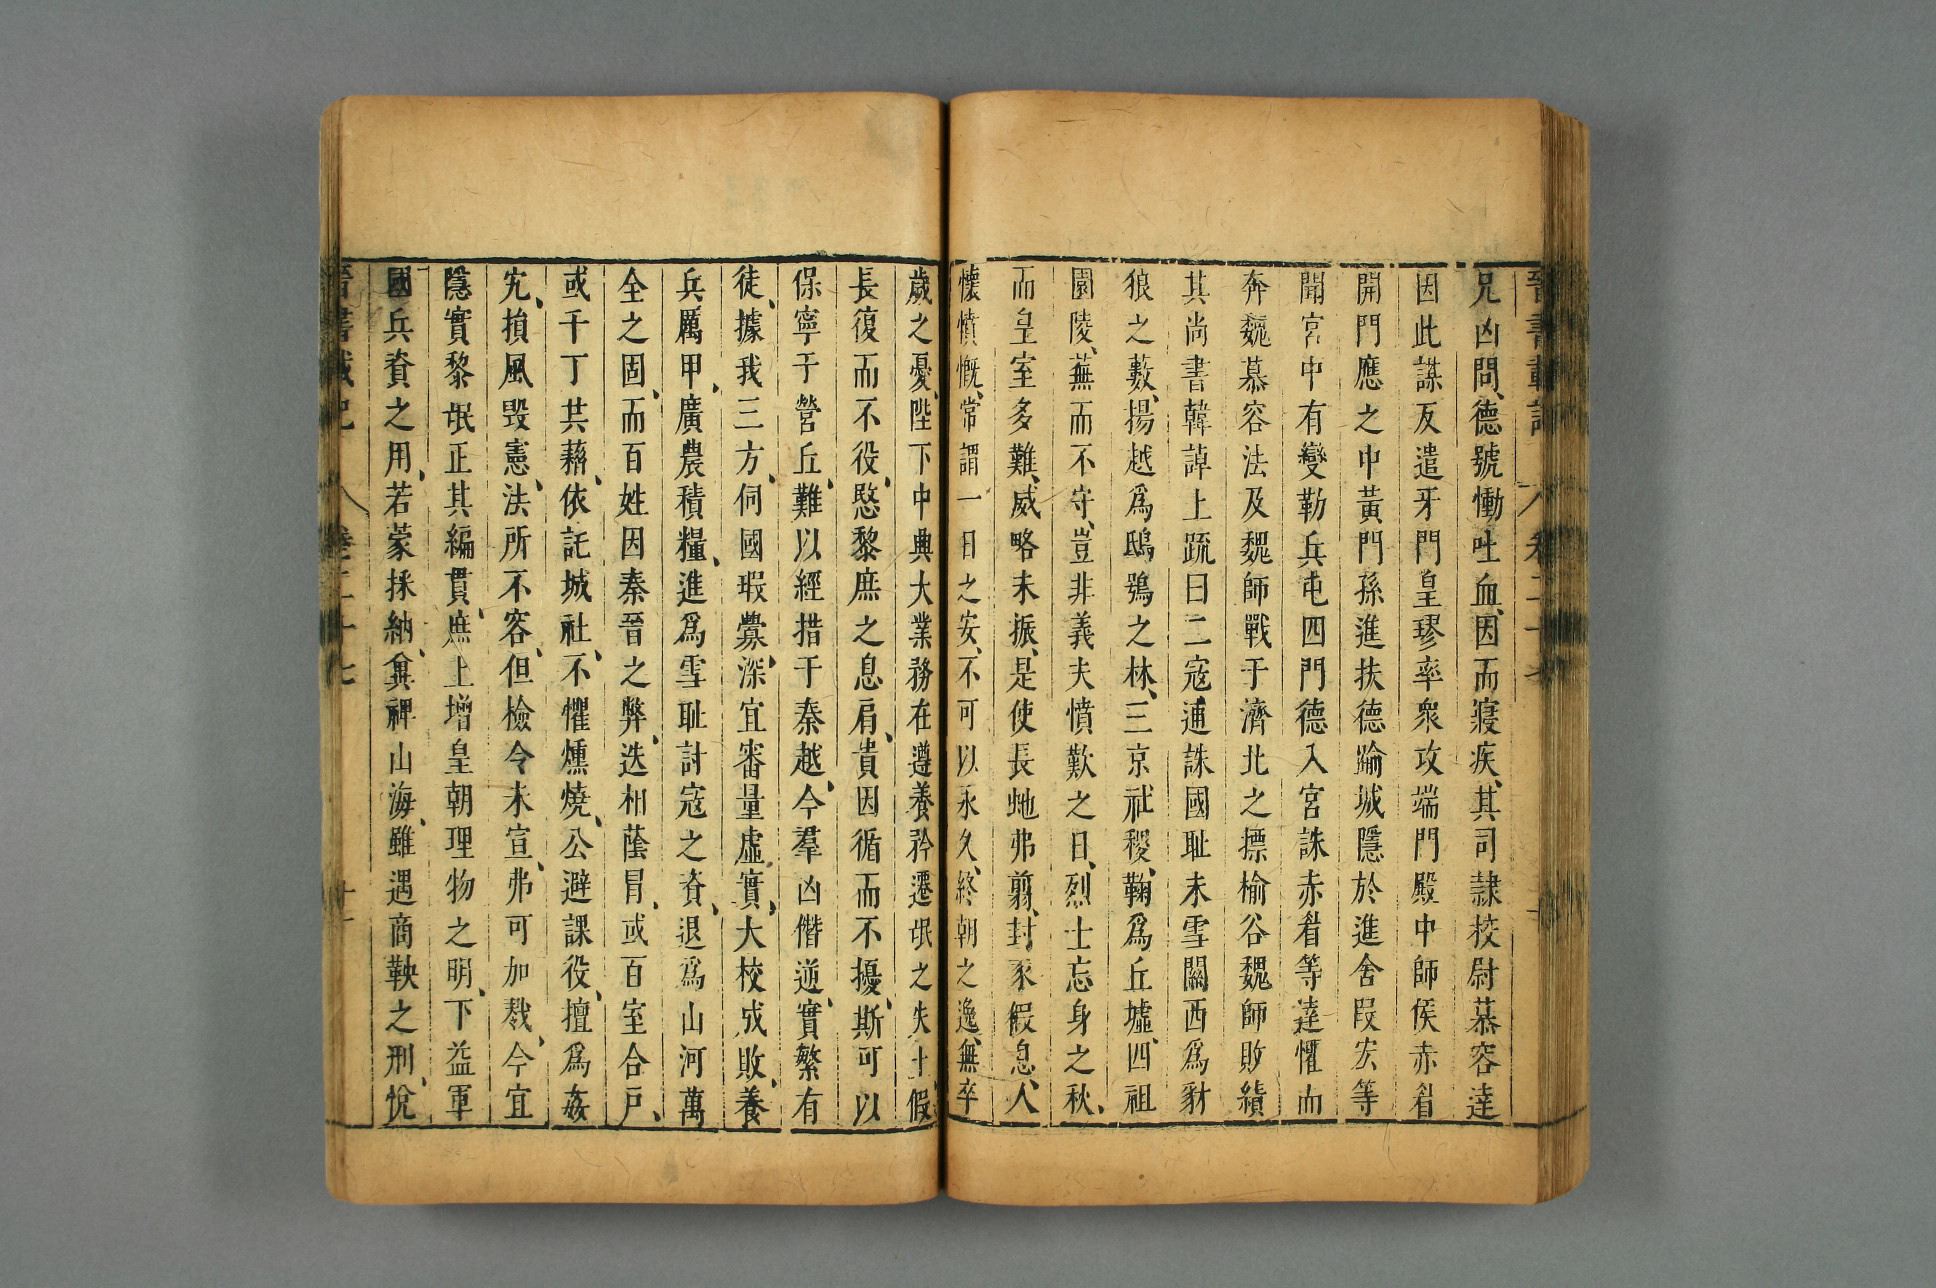 兄凶問、德號慟吐血、因而寢疾、其司隷校尉慕容達
因此謀反遣牙門皇璆率衆攻端門殿中師侯赤眉
開門應之中黃門孫進扶德踰城隱於進舍段宏等
聞宮中有變勒兵屯四門德入宮誅赤眉等達懼而
奔魏慕容法及魏師戰于濟北之摽榆谷魏師敗績
其尚書韓𧨳上疏曰二寇逋誅國恥未雪關西爲豺
狼之藪、揚越爲鴟鴞之林、三京社稷、鞠爲丘墟、四祖
園陵、蕪而不守、豈非義夫憤歎之日、烈士忘身之秋、
而皇室多難、威略未振、是使長虵弗翦、封豕假息、人
懷憤慨、常謂一日之安、不可以永久、終朝之逸、無卒
歲之憂、陛下中興大業務在遵養矜遷氓之失土、假
長復而不役、愍黎庶之息肩、貴因循而不擾、斯可以
保寧于營丘、難以經措于秦越、今羣凶僭逆、實繁有
徒、據我三方、伺國瑕釁、深宜審量虛實、大校成敗、養
兵厲甲、廣農積糧、進爲雪恥討寇之資、退爲山河萬
全之固、而百姓因秦晉之弊、迭相蔭冒、或百室合戶、
或千丁共藉、依託城社、不懼燻燒、公避課役、擅爲姦
宄、損風毀憲、法所不容、但檢令未宣、弗可加戮、今宜
隱實黎氓正其編貫、庶上增皇朝理物之明、下益軍
國兵資之用、若蒙採納、冀裨山海、雖遇商鞅之刑、悅
晉書載記 卷二十七 十一